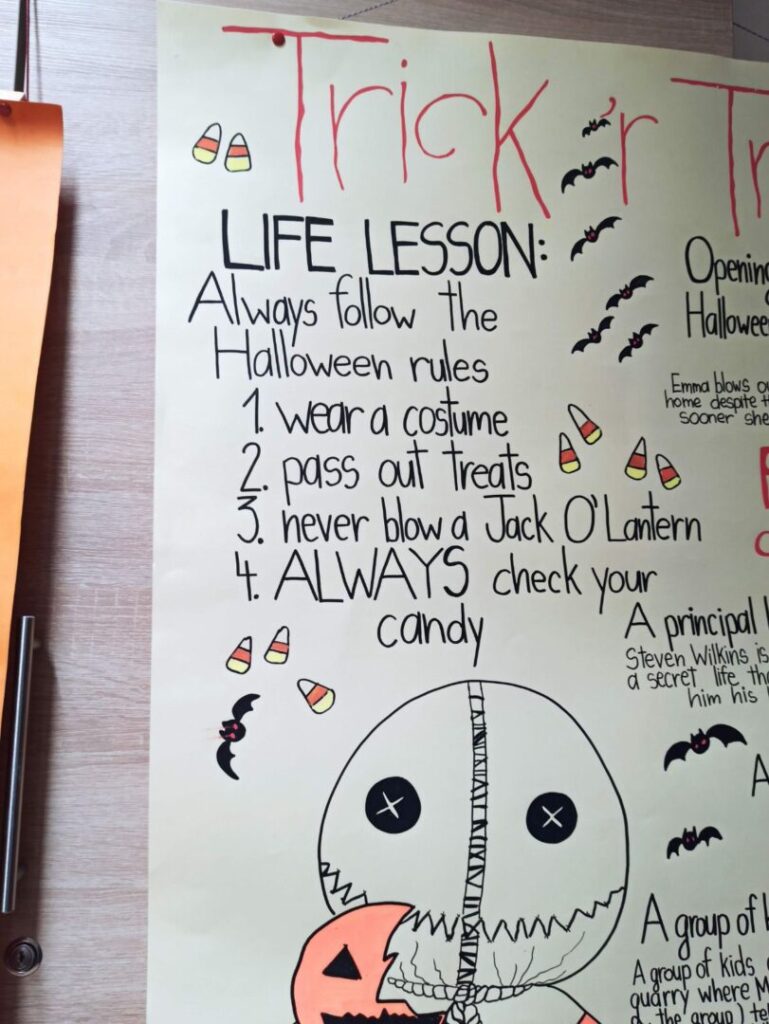 Trick 'r Tr
LIFE LESSON:
Always follow the
Halloween rules
1. wear a costume
2. pass out treats
3. never blow a Jack O'Lantern
4. ALWAYS check your
candy
Opening
Hallowee
Emma blows o
home despite t
sooner she
A principal
Steven Wilkins is
a secret life tha
him his
A
A group of
A group of kids
quarry where M
the group) tel